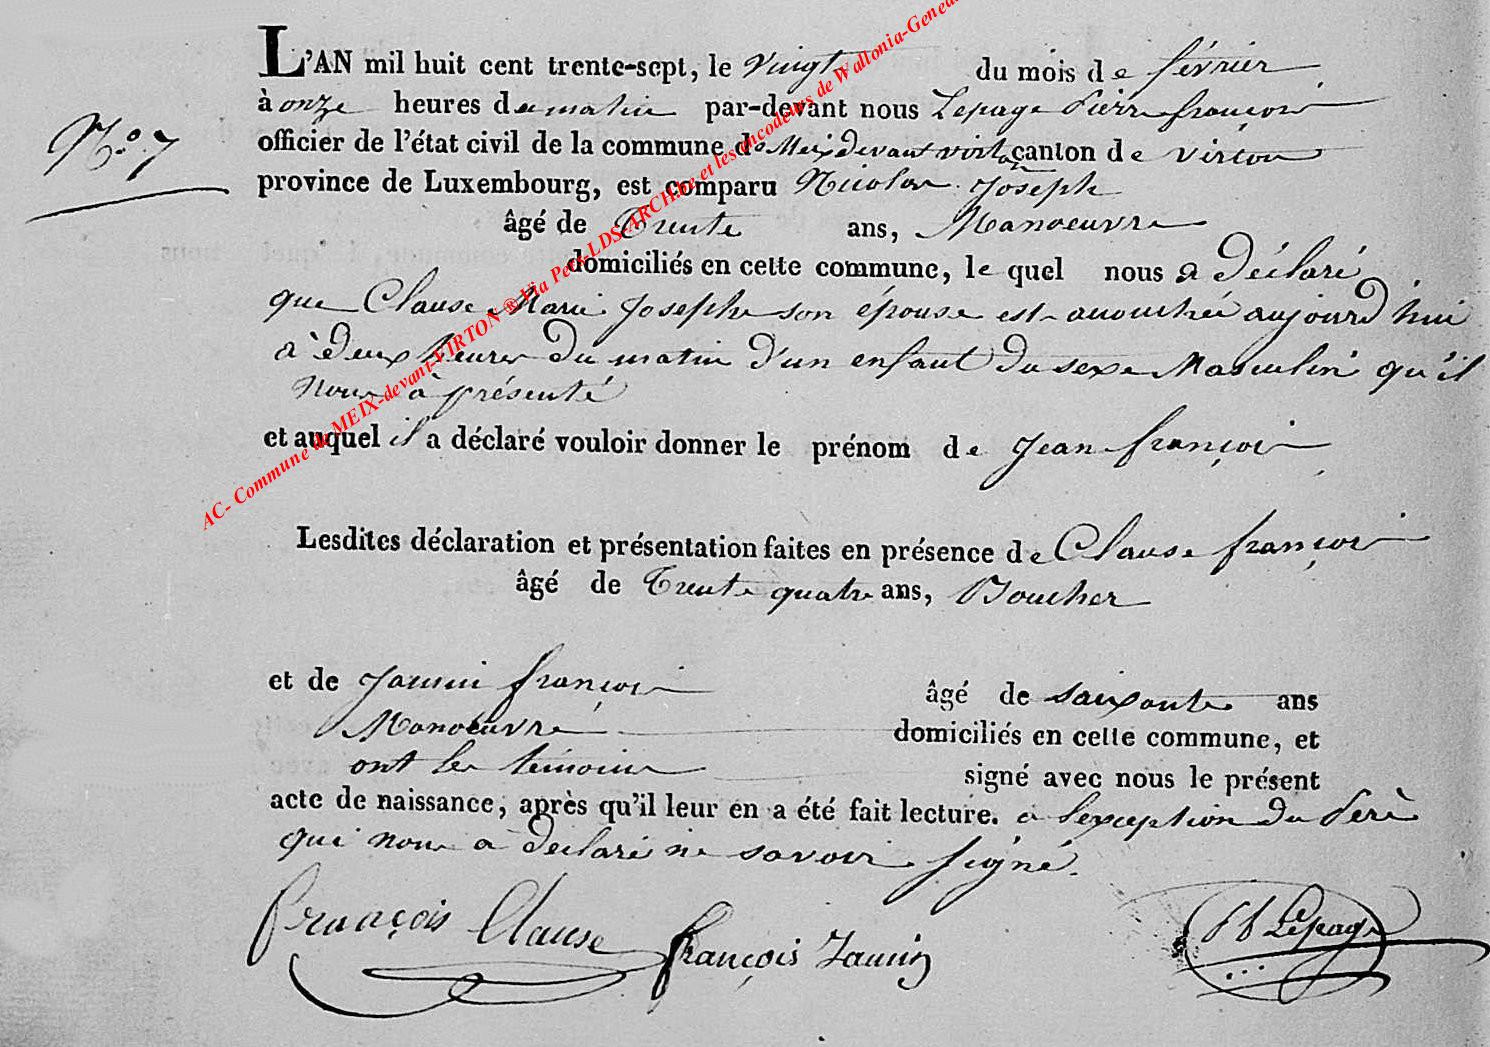 L'AN mil huit cent trente-sept, le vingt du mois de février
à onze heures du matin par-devant nous Lepage Pierre françois
N.o 7
officier de l'état civil de la commune de Meix devant virton canton de virton
province de Luxembourg, est comparu Nicolas Joseph
âgé de Trente ans, Manoeuvre
domiciliés en cette commune, le quel nous a déclaré
que Clause Marie Josephe son épouse est accouchée aujourd'hui
à deux heures du matin d'un enfant du sexe Masculin qu'il
nous à présenté
et auquel il a déclaré vouloir donner le prénom de Jean françois
Lesdites déclaration et présentation faites en présence de Clause françois
âgé de Trente quatre ans, Boucher
et de Jamin françois âgé de soixante ans
Manoeuvre domiciliés en cette commune, et
ont les témoins signé avec nous le présent
acte de naissance, après qu'il leur en a été fait lecture. a l'exception du Père
qui nous a déclaré ne savoir signé.
françois Clause françois Jamin Lepage
AC- Commune de MEIX-devant-VIRTON ® Via Pers-LDS-ARCH.be et les encodeurs de Wallonia-Genea